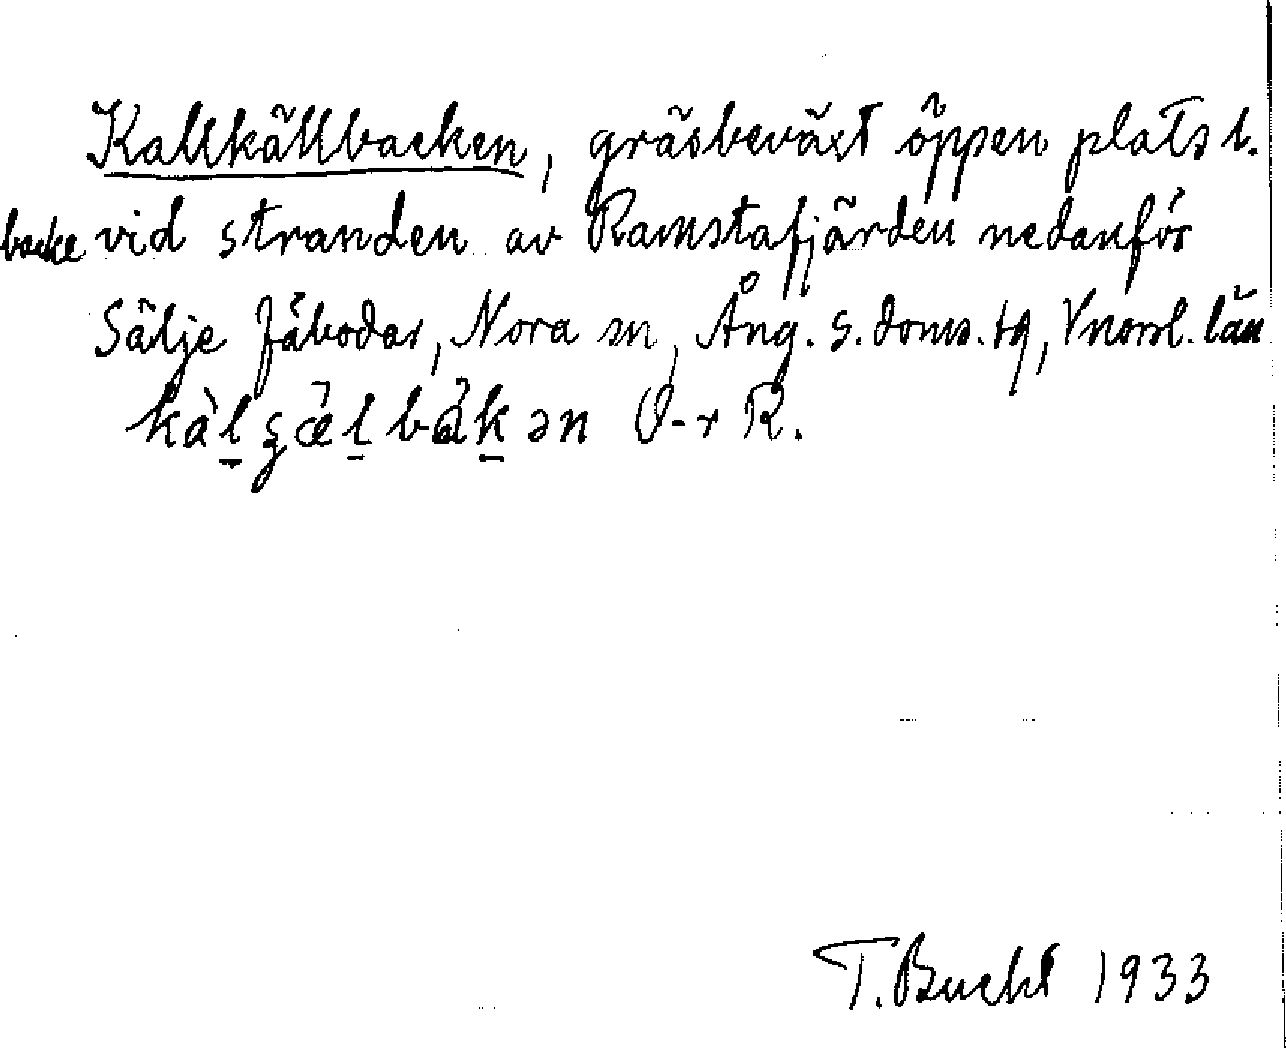 Kallkällbacken, gräsbeväxt öppen plats l.
backe vid stranden av Ramstafjärden nedanför
Sälje fäbodar, Nora sn, Ång. s. doms. tg, Vnorrl. län
kàl̠ʂæ̀l̠bàk̠ən
T. Bucht 1933